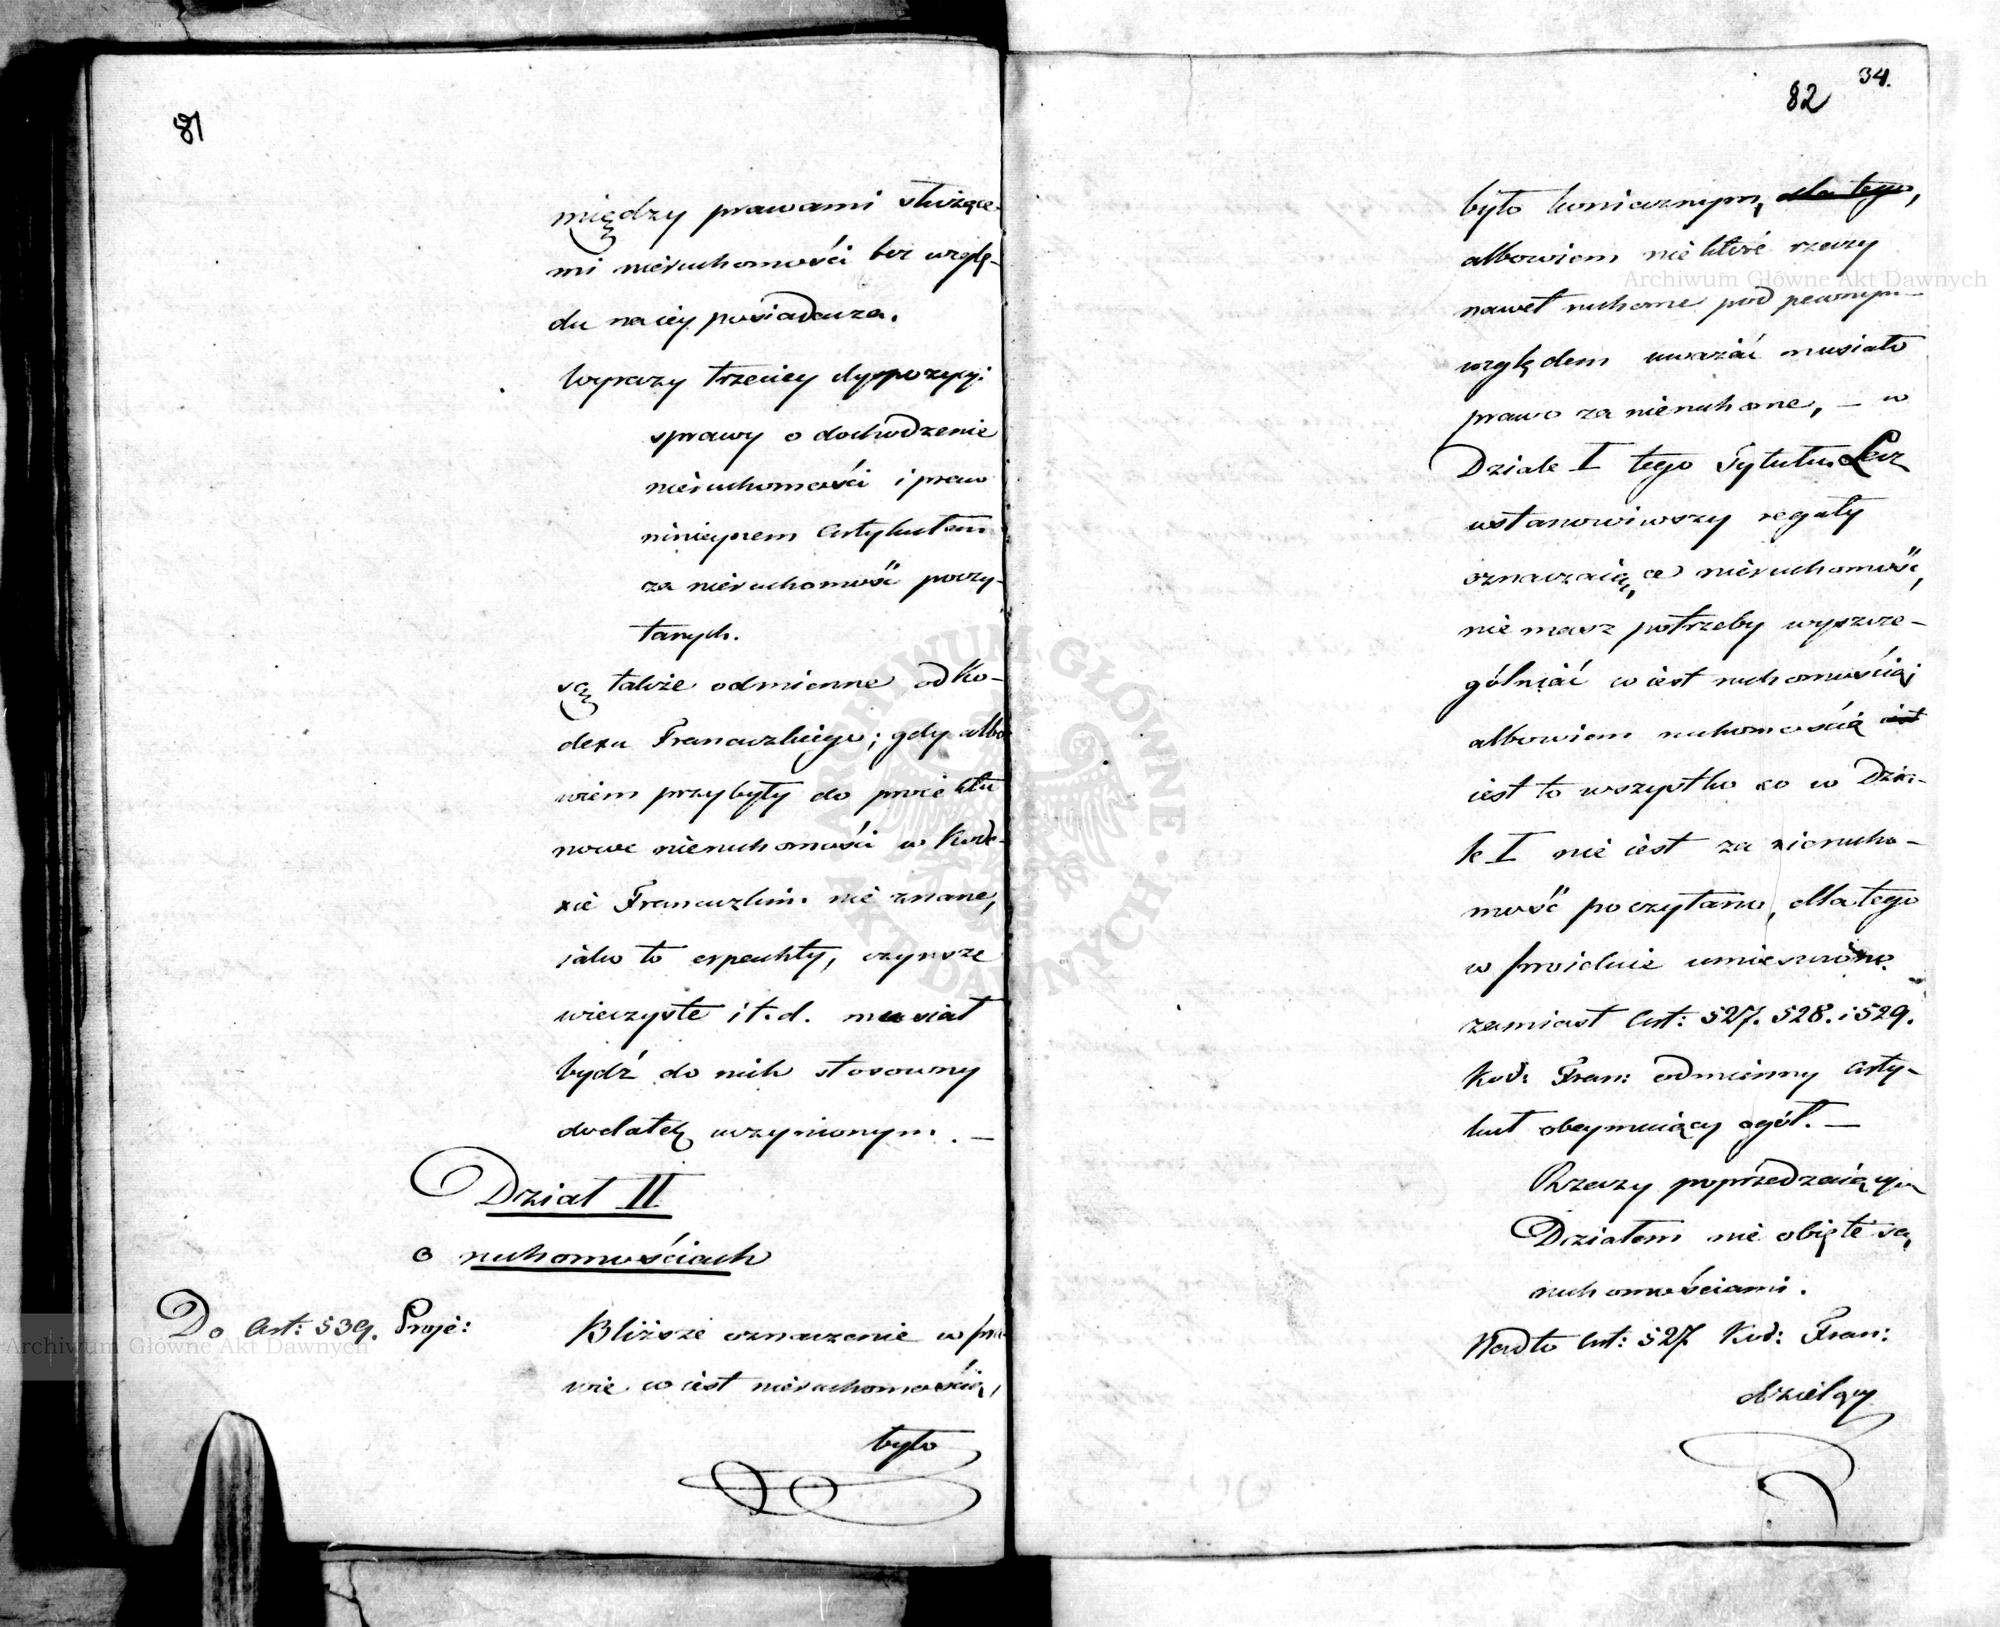 81
między prawami służące-
mi nieruchomości bez wzglę-
du na iey posiadacza.
Wyrazy trzeciey dyspozycyi:
sprawy o dochodzenie
nieruchomości i praw
ninieyszem Artykułem
za nieruchomość poczy-
tanych.
są także odmienne od Ko-
dexu Francuzkiego; gdy albo
wiem przybyły do proiektu
nowe nieruchomości w Kode-
xie Francuzkim nie znane,
iako to erpachty, czynsze
wieczyste i t. d. musiał
bydź do nich stosowny
dodatek uczynionym. —
Dział II
o ruchomościach
Do Art: 539. Proje:
Bliższe oznaczenie w pra-
wie co iest nieruchomością,
było
82
34.
było koniecznym, dla tego,
albowiem niektóre rzeczy
nawet ruchome pod pewnym
względem uważać musiało
prawo za nieruchome, — w
Dziale I tego Tytułu. Lecz
ustanowiwszy reguły
oznaczaiące nieruchomość,
nie masz potrzeby wyszcze-
gólniać co iest ruchomością;
albowiem ruchomością iest
iest to wszystko co w Dzia-
le I nie iest za nierucho-
mość poczytano, dla tego
w proiekcie umieszczono
zamiast Art: 527. 528. i 529.
Kod: Fran: odmienny Arty-
kuł obeymuiący ogół. —
Rzeczy poprzedzaiącym
Działem nie obięte są,
ruchomościami.
Nadto Art: 527 Kod: Fran:
dzielący
Archiwum Główne Akt Dawnych
Archiwum Główne Akt Dawnych
ARCHIWUM GŁÓWNE · AKT DAWNYCH ·